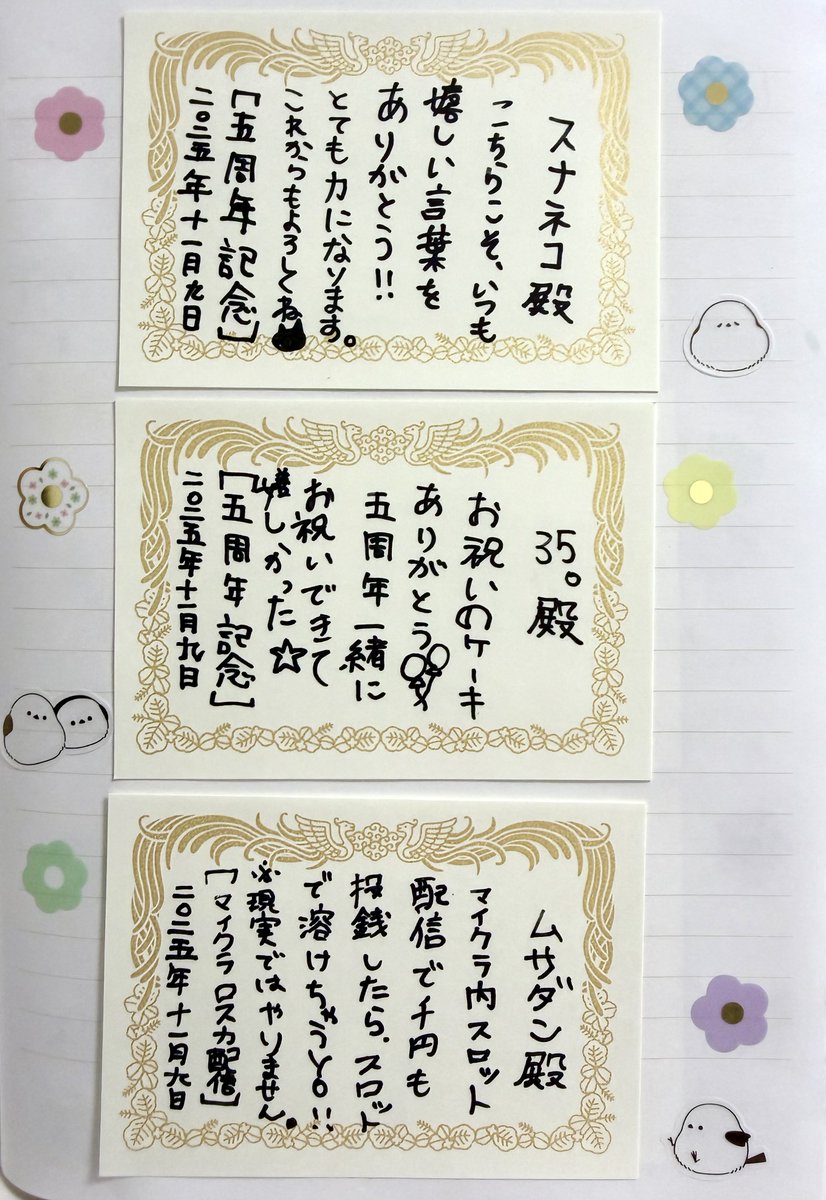 スナネコ殿
こちらこそ、いつも
嬉しい言葉を
ありがとう!!
とても力になります。
これからもよろしくね
「五周年記念」
二〇二五年十一月九日
35。殿
お祝いのケーキ
ありがとう
五周年一緒に
お祝いできて
嬉しかった☆
「五周年記念」
二〇二五年十一月九日
ムサダン殿
マイクラ内スロット
配信で千円も
投銭したら、スロット
で溶けちゃうYO!!
※現実ではやりません。
「マイクラロスカ配信」
二〇二五年十一月九日